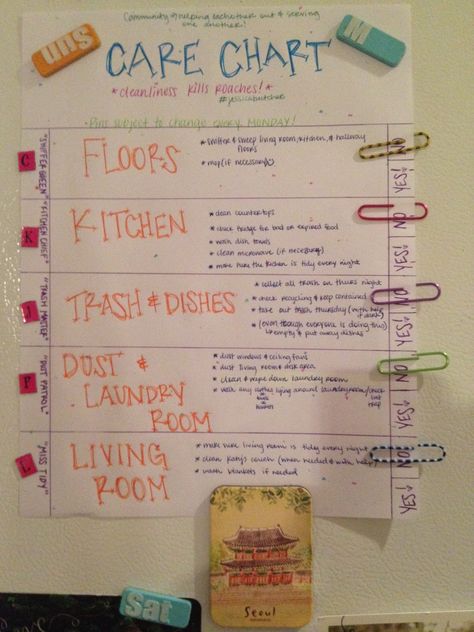 Community = helping eachother out & serving
one another!
Sun
M
CARE CHART
*cleanliness kills roaches!*
#jessicabutcher
*Pins subject to change every MONDAY!
C
"SWIFFER QUEEN"
FLOORS
* swiffer & sweep living room, kitchen, & hallway
floors
* mop (if necessary)
NO
YES!
K
"KITCHEN CHIEF"
KITCHEN
* clean countertops
* check fridge for bad or expired food
* wash dish towels
* clean microwave (if necessary)
* make sure the kitchen is tidy every night
NO
YES!
J
"TRASH MASTER"
TRASH & DISHES
* collect all trash on thurs night
* check recycling & keep contained
* take out trash thursday (with help
if needed)
* (even though everyone is doing this)
empty & put away dishes
NO
YES!
P
"DUST PATROL"
DUST &
LAUNDRY
ROOM
* dust windows & ceiling fans
* dust living room & desk area
* clean & wipe down laundry room
* wash any clothes lying around laundry room/check
lint
trap
NO
YES!
L
"MISS TIDY"
LIVING
ROOM
* make sure living room is tidy every night
* clean couch (when needed & with help)
* wash blankets if needed
NO
YES!
Seoul
Sat